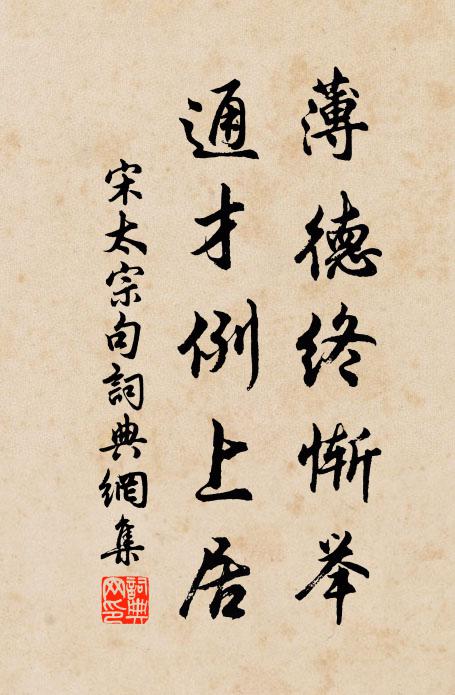 薄德终惭举
通才例上居
宋太宗句詞典網集
詞典